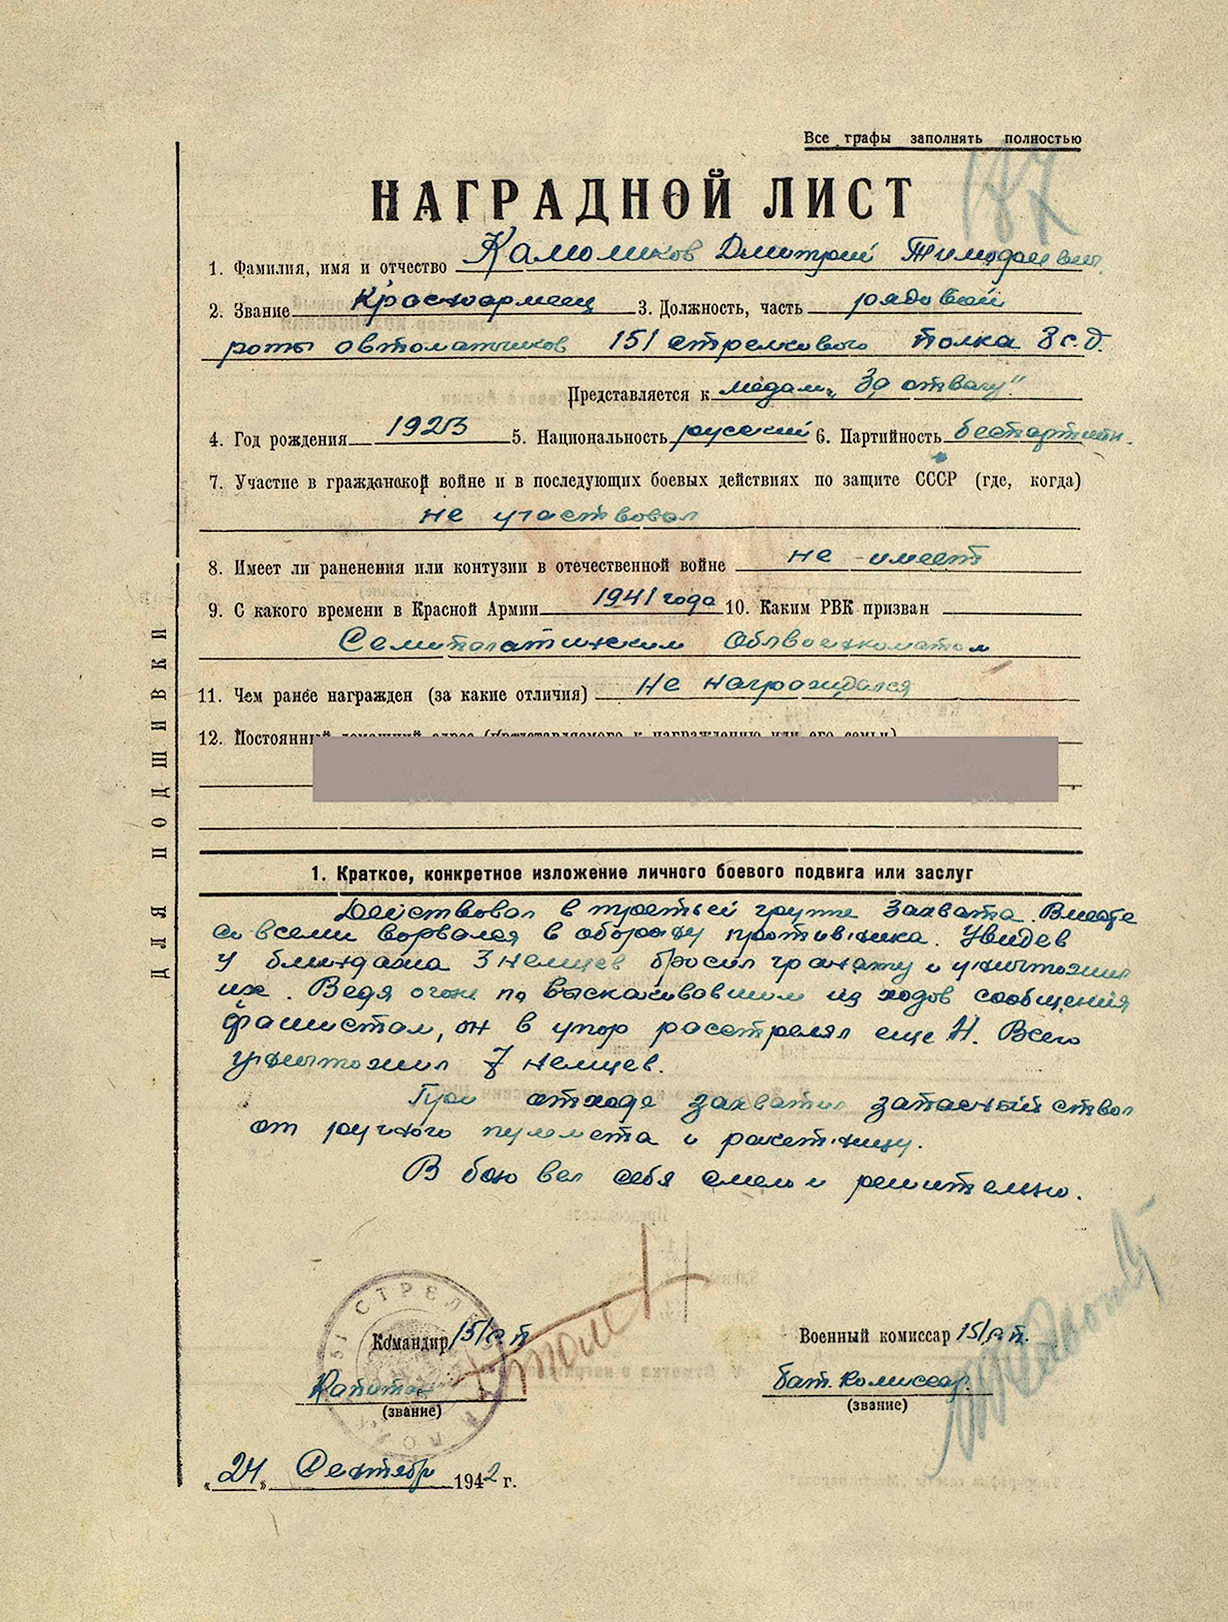 Все графы заполнять полностью
187
НАГРАДНОЙ ЛИСТ
1. Фамилия, имя и отчество Дмитрий Тимофеевич
2. Звание Красноармеец 3. Должность, часть рядовой
роты автоматчиков 151 стрелкового полка 8 с.д.
Представляется к медали „За отвагу"
4. Год рождения 1923 5. Национальность русский 6. Партийность беспартийн.
7. Участие в гражданской войне и в последующих боевых действиях по защите СССР (где, когда)
не участвовал
8. Имеет ли раненения или контузии в отечественной войне не имеет
9. С какого времени в Красной Армии 1941 года 10. Каким РВК призван
Семипалатинским Облвоенкоматом
11. Чем ранее награжден (за какие отличия) Не награждался
12. Постоянный домашний адрес (представляемого к награждению или его семьи)
ДЛЯ ПОДШИВКИ
1. Краткое, конкретное изложение личного боевого подвига или заслуг
Действовал в третьей группе захвата. Вместе
со всеми ворвался в оборону противника. Увидев
у блиндажа 3 немцев бросил гранату и уничтожил
их. Ведя огонь по выскакивавшим из ходов сообщения
фашистам, он в упор расстрелял еще 4. Всего
уничтожил 7 немцев.
При отходе захватил запасный ствол
от ручного пулемета и ракетницу.
В бою вел себя смело и решительно.
Командир 151 с.п. Военный комиссар 151 с.п.
Капитан бат. Комиссар.
(звание) (звание)
„24" Сентябр 1942 г.